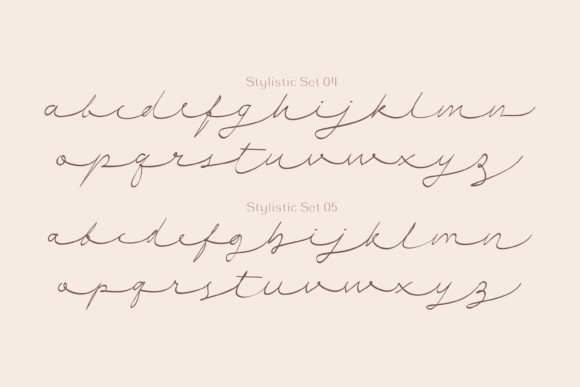 Stylistic Set 04
abcdefghijklmn
opqrstuvwxyz
Stylistic Set 05
abcdefghijklmn
opqrstuvwxyz